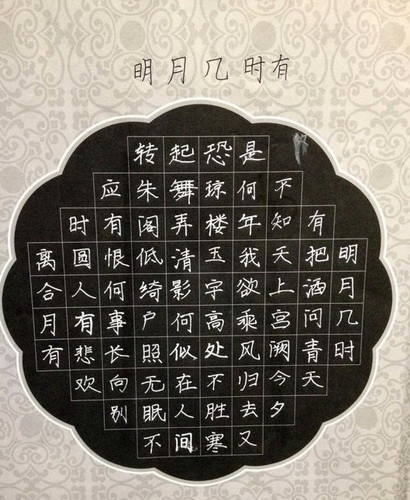 明月几时有
明月几时
有把酒问青天
不知天上宫阙今夕
是何年我欲乘风归去又
恐琼楼玉宇高处不胜寒
起舞弄清影何似在人间
转朱阁低绮户照无眠不
应有恨何事长向别
时圆人有悲欢
离合月有